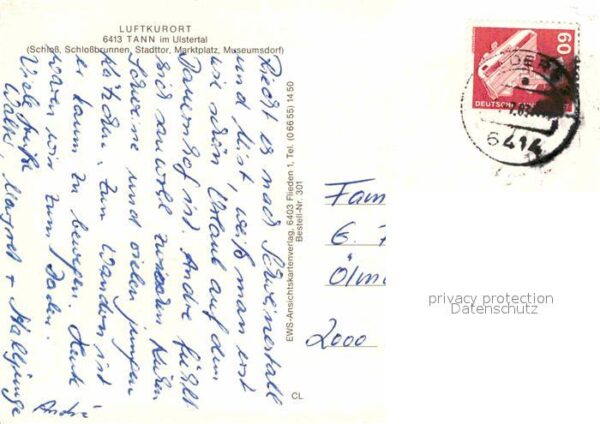 LUFTKURORT
6413 TANN im Ulstertal
(Schloß, Schloßbrunnen, Stadttor, Marktplatz, Museumsdorf)
Riecht es nach Schweinestall
und Mist, weiß man erst
wie schön Urlaub auf dem
Bauernhof ist. André fühlt
sich sauwohl zwischen Kühen
Schweine und vielen jungen
Kätzchen. Zum Wandern ist
er kaum zu bewegen. Heute
waren wir zum Baden.
Viele Grüße
Walter, Margret +
André
EWS-Ansichtskartenverlag, 6403 Flieden 1, Tel. (0 66 55) 14 50
Bestell-Nr. 301
CL
60
DEUTSCHE
6414
Fam
G.
2000
privacy protection
Datenschutz